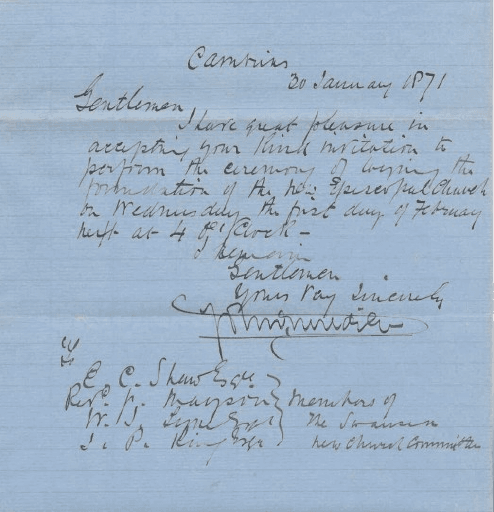 Cambria
30 January 1871
Gentlemen
I have great pleasure in
accepting your kind invitation to
perform the ceremony of laying the
foundation of the new Episcopal Church
on Wednesday the first day of February
next at 4 O'Clock –
I remain
Gentlemen
Yours Very Sincerely
To
E. C. Shaw Esqr
Revd. W. Mayson
W. J. Esqr
J. P. King Esqr
Members of
the Swansea
new Church Committee